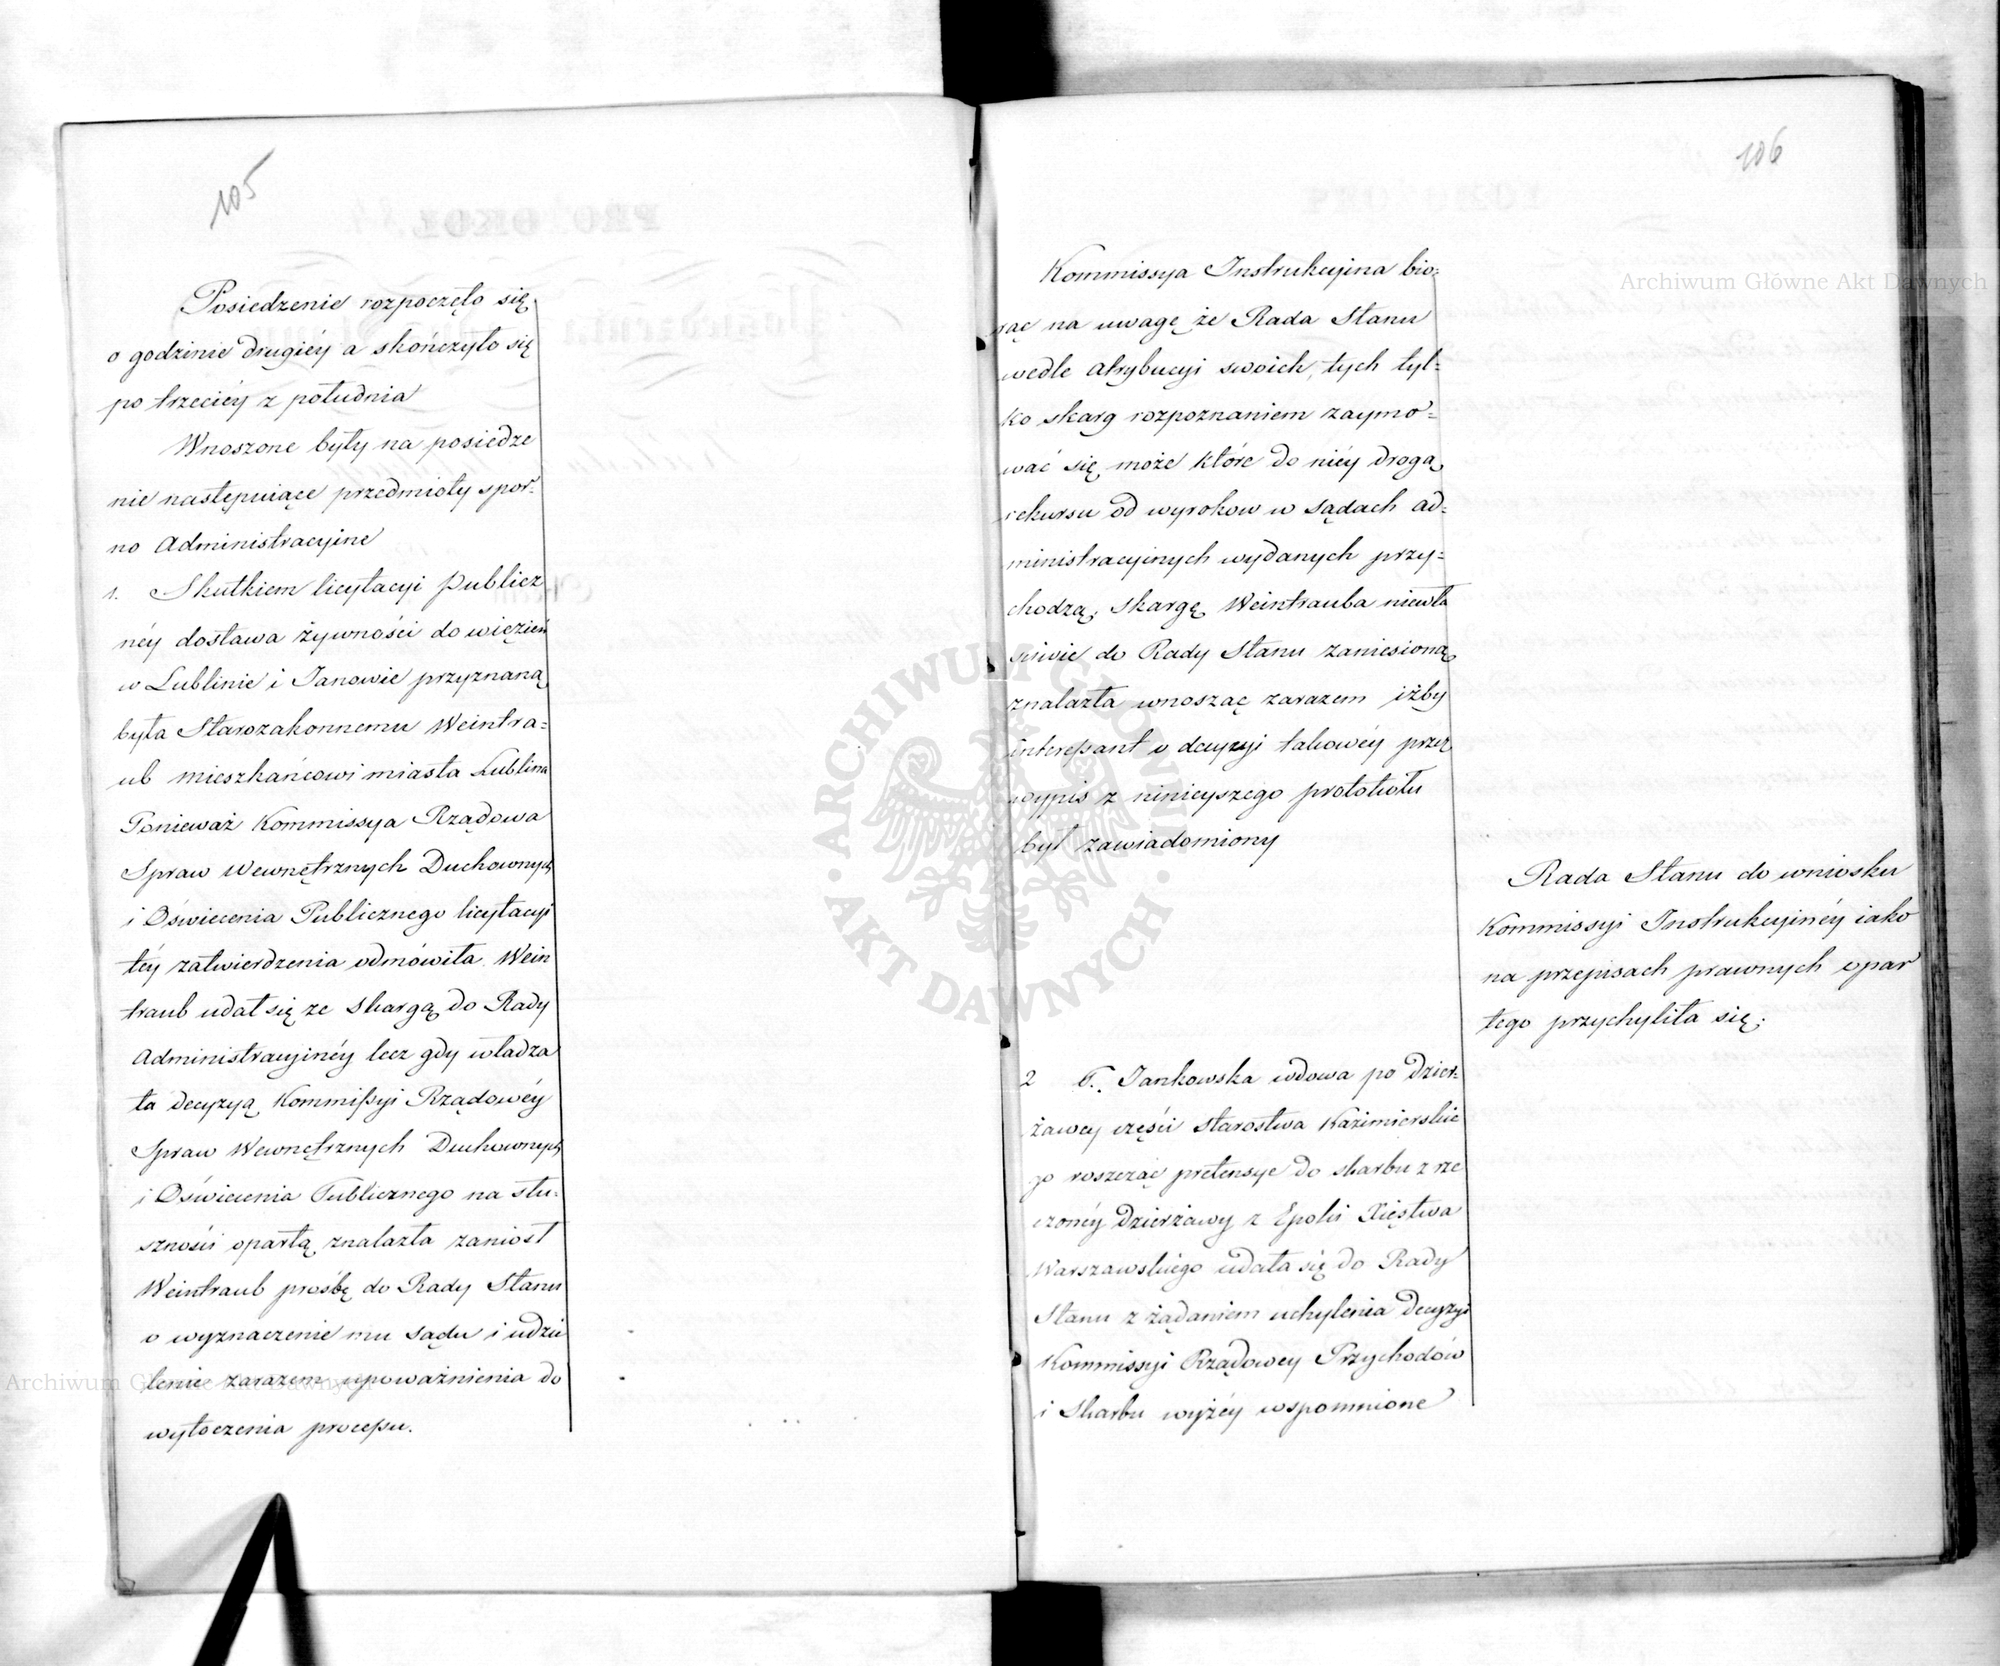 105
Posiedzenie rozpoczęło się
o godzinie drugiéy a skończyło się
po trzeciéy z południa
Wnoszone były na posiedze
nie następuiące przedmioty spor-
no Administracyine
1. Skutkiem licytacyi publicz
néy dostawa żywności do więzień
w Lublinie i Janowie przyznaną
była Starozakonnemu Weintra=
ub mieszkańcowi miasta Lublina
Ponieważ Kommissya Rządowa
Spraw Wewnętrznych Duchownych
i Oświecenia Publicznego licytacyi
téy zatwierdzenia odmówiła. Wein
traub udał się ze skargą do Rady
Administracyinéy lecz gdy władza
ta decyzyą Kommissyi Rządowéy
Spraw Wewnętrznych Duchownych
i Oświecenia Publicznego na słu-
szności opartą znalazła zaniosł
Weintraub prośbę do Rady Stanu
o wyznaczenie mu sądu i udzie
lenie zarazem upoważnienia do
wytoczenia processu.
106
Kommissya Instrukcyina bio-
rąc na uwagę że Rada Stanu
wedle atrybucyi swoich, tych tyl=
ko skarg rozpoznaniem zaymo=
wać się może które do niéy drogą
rekursu od wyrokow w sądach ad=
ministracyinych wydanych przy=
chodzą; skargę Weintrauba niewła
ściwie do Rady Stanu zaniesioną
znalazła wnosząc zarazem iżby
interessant o decyzyi takowéy przez
wypis z ninieyszego protokołu
był zawiadomiony
Rada Stanu do wniosku
Kommissyi Instrukcyinéy iako
na przepisach prawnych opar
tego przychyliła się.
2 T. Jankowska wdowa po dzier-
żawcy części starostwa Kazimierskie
go roszcząc pretensye do skarbu z rze
czonéy dzierżawy z Epoki Xięstwa
Warszawskiego udała się do Rady
Stanu z żądaniem uchylenia decyzyi
Kommissyi Rządowey Przychodów
i Skarbu wyżéy wspomnione
Archiwum Główne Akt Dawnych
Archiwum Główne Akt Dawnych
ARCHIWUM GŁÓWNE
AKT DAWNYCH